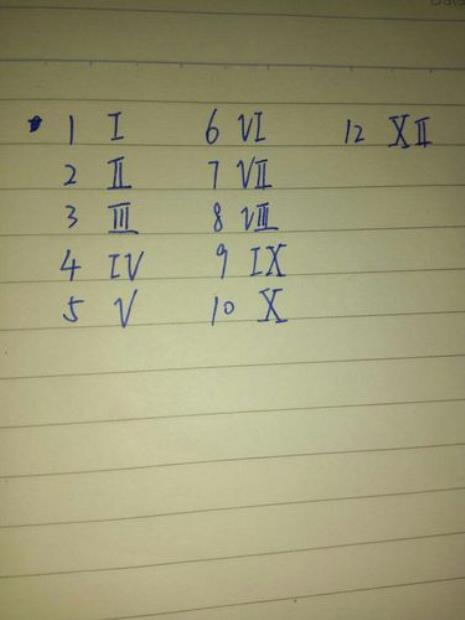 1 I 6 VI 12 XII
2 II 7 VII
3 III 8 VIII
4 IV 9 IX
5 V 10 X